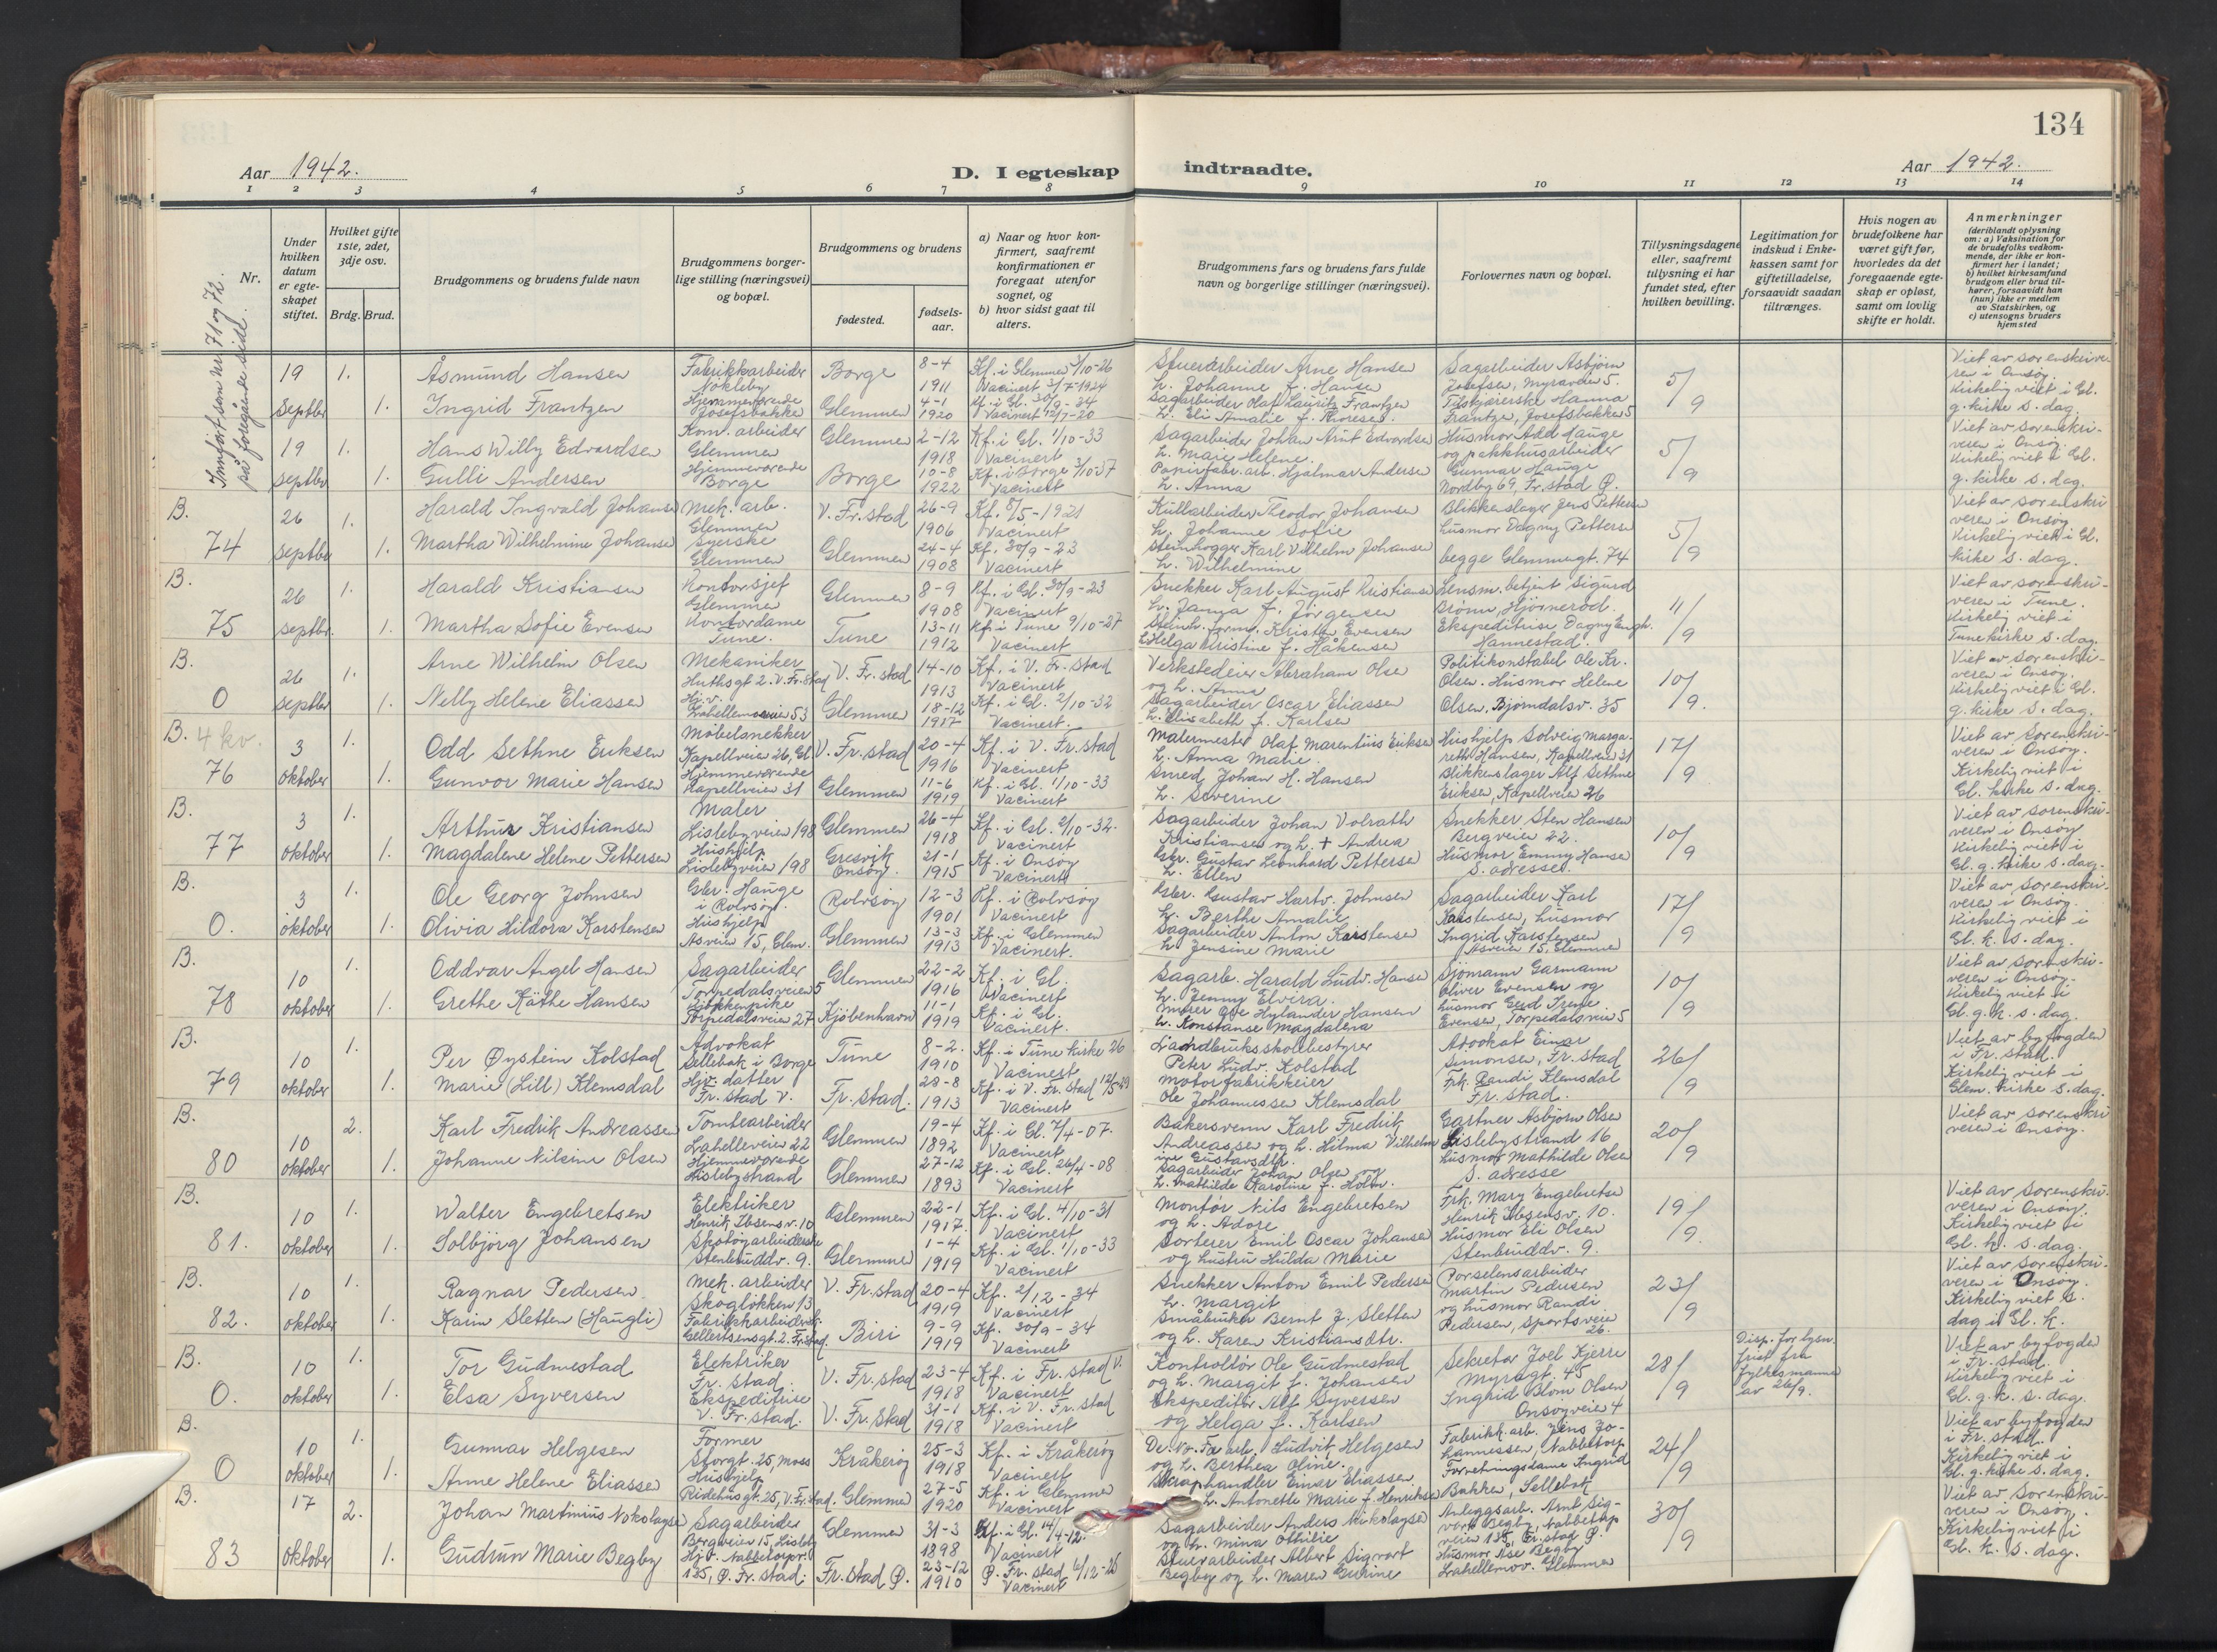 134
Aar 1942.
D. I egteskap indtraadte.
Aar 1942.
1 2 3 4 5 6 7 8 9 10 11 12 13 14
Nr.
Under hvilken datum er egteskapet stiftet.
Hvilket gifte 1ste, 2det, 3dje osv.
Brdg. Brud.
Brudgommens og brudens fulde navn
Brudgommens borgerlige stilling (næringsvei) og bopæl.
Brudgommens og brudens
fødested.
fødselsaar.
a) Naar og hvor konfirmert, saafremt konfirmationen er foregaat utenfor sognet, og
b) hvor sidst gaat til alters.
Brudgommens fars og brudens fars fulde navn og borgerlige stillinger (næringsvei).
Forlovernes navn og bopæl.
Tillysningsdagene eller, saafremt tillysning ei har fundet sted, efter hvilken bevilling.
Legitimation for indskud i Enkekassen samt for giftetilladelse, forsaavidt saadan tiltrænges.
Hvis nogen av brudefolkene har været gift før, hvorledes da det foregaaende egteskap er opløst, samt om lovlig skifte er holdt.
Anmerkninger
(deriblandt oplysning om: a) Vaksination for de brudefolks vedkommende, der ikke er konfirmert her i landet; b) hvilket kirkesamfund brudgom eller brud tilhører, forsaavidt han (hun) ikke er medlem av Statskirken, og c) utensogns bruders hjemsted
Innført som nr 71 og 72. på foregående side.
19 septbr 1. 1.
Åsmund Hansen
Ingrid Frantzen
Fabrikkarbeider
Nøkleby
Hjemmeværende
Josefsbakke
Borge
Glemmen
8-4 1911
4-1 1920
Kf. i Glemmen 3/10-26
Vacinert 3/7-1924
Kf. i Gl. 30/9-34
Vacinert 12/7-20
Stuerarbeider Arne Hansen
h. Johanne f. Hansen
Sagarbeider Olaf Lauritz Frantzen
h. Eli Amalie f. Thoresen
Sagarbeider Asbjørn
Josefsen, Myraveien 5.
Filskjærerske Hanna
Frantze, Josefsbakke 5
5/9
Viet av sorenskriveren i Onsøy.
Kirkelig viet i Gl. g. kirke s. dag.
19 septbr 1. 1.
Hans Willy Edvardsen
Gulli Andersen
Kom. arbeider
Glemmen
Hjemmeværende
Borge
Glemmen
Borge
2-12 1918
10-8 1922
Kf. i Gl. 1/10-33
Vacinert
Kf. i Borge 3/10-37
Vacinert
Sagarbeider Johan Arnt Edvardsen
h. Marie Helene.
Papirfabr. arb. Hjalmar Andersen
h. Anna
Husmor Add Hauge
og pakkhusarbeider
Gunnar Hauge
Nordby 69, Fr.stad Ø.
5/9
Viet av sorenskriveren i Onsøy.
Kirkelig viet i Gl. g. kirke s. dag.
B. 74
26 septbr 1. 1.
Harald Ingvald Johansen
Martha Wilhelmine Johansen
Mek. arb.
Glemmen
Syerske
Glemmen
V. Fr.stad
Glemmen
26-9 1906
24-4 1908
Kf. 8/5-1921
Vacinert
Kf. 30/9-23
Vacinert
Kullarbeider Theodor Johansen
h. Johanne Sofie
Steinhogger Karl Vilhelm Johansen
h. Wilhelmine
Blikkenslager Jens Pettersen
husmor Dagny Pettersen
begge Glemmengt. 74
5/9
Viet av sorenskriveren i Onsøy.
Kirkelig viet i Gl. kirke s. dag.
B. 75
26 septbr. 1. 1.
Harald Kristiansen
Martha Sofie Evensen
Kontorsjef
Glemmen
Kontordame
Tune.
Glemmen
Tune
8-9 1908
13-11 1912
Kf. i Gl. 30/9-23
Vacinert
Kf. i Tune 9/10-27
Vacinert
Snekker Karl August Kristiansen
h. Janna f. Jörgensen
Steinh. form. Kristen Evensen
h. Helga Kristine f. Håkensen
Lensm. betjent Sigurd
Brönn, Hjörneröd.
Ekspeditrise Dagny Engh.
Hannestad.
11/9
Viet av sorenskriveren i Tune.
Kirkelig viet i Tune kirke s. dag.
B. 0
26 septbr 1. 1.
Arne Wilhelm Olsen
Nelly Helene Eliassen
Mekaniker
Huthsgt 2. V. Fr.stad
Hj.v.
Lahellemoveien 53
V. Fr. stad
Glemmen
14-10 1913
18-12 1917
Kf. i V. Fr. stad
Vacinert
Kf. i Gl. 2/10-32
Vacinert.
Verkstedeier Abraham Olsen
og h. Anna
Sagarbeider Oscar Eliassen
h. Elisabeth f. Karlsen
Politikonstabel Ole Kr.
Olsen. Husmor Helene
Olsen, Bjørndalsv. 35
10/9.
Viet av sorenskriveren i Onsøy.
Kirkelig viet i Gl. g. kirke s. dag.
B. 4 kv. 76
3 oktober 1. 1.
Odd Sethne Eriksen
Gunvor Marie Hansen
Möbelsnekker
Kapellveien 26, Gl.
Hjemmeværende
Kapellveien 31
V. Fr.stad
Glemmen
20-4 1916
11-6 1919
Kf. i V. Fr.stad
Vacinert
Kf. i Gl. 1/10-33
Vacinert
Malermester Olaf Marentius Eriksen
h. Anna Marie
Smed Johan H. Hansen
h. Severine
Hushjelp Solveig Margareth Hansen, Kapellveien 31
Blikkenslager Alf Sethne
Eriksen, Kapellveien 26
17/9
Viet av Sorenskriveren i Onsøy.
Kirkelig viet i Gl. kirke s. dag.
B. 77
3 oktober 1. 1.
Arthur Kristiansen
Magdalene Helene Pettersen
Maler
Lislebyveien 198
Hushjelp
Lislebyveien 198
Glemmen
Gresvik Onsøy.
26-4 1918
21-1 1915
Kf. i Gl. 2/10-32.
Vacinert
Kf. i Onsøy
Vacinert
Sagarbeider Johan Volrath
Kristiansen og h. + Andrea
Gbr. Gustav Leonhard Pettersen
h. Ellen
Snekker Sten Hansen
Bergveien 22.
Husmor Emmy Hansen
S. adresse.
10/9
Viet av sorenskriveren i Onsøy.
Kirkelig viet i Gl. g. kirke s. dag.
B. 0.
3 oktober 1. 1.
Ole Georg Johnsen
Olivia Hildora Karstensen
Gbr. Hauge
i Rolvsøy.
Hushjelp
Åsveien 15, Glem.
Rolvsøy
Glemmen
12-3 1901
13-3 1913
Kf. i Rolvsøy
Vacinert
Kf. i Glemmen
Vacinert.
Gbr. Gustav Hartv. Johnsen
h. Berthe Amalie
Sagarbeider Anton Karstensen
h. Jensine Marie
Sagarbeider Karl
Karstensen, husmor
Ingrid Karstensen
Åsveien 15, Glemmen
17/9
Viet av sorenskriveren i Onsøy.
Kirkelig viet i Gl. k. s. dag.
B. 78
10 oktober 1. 1.
Oddvar Angel Hansen
Grethe Käthe Hansen
Sagarbeider
Torpedalsveien 5
Torpedalsveien 27
Glemmen
Kjöbenhavn
22-2 1916
11-1 1919
Kf. i Gl.
Vacinert
Kf. i Gl.
Vacinert.
Sagarb. Harald Ludv. Hansen
h. Jenny Elvira.
Murer Ove Hylander Hansen
h. Konstanse Magdalena
Sjømann Garmann
Oliver Evensen og
husmor Gerd Irene
Evensen, Torpedalsveien 5
10/9
Viet av sorenskriveren i Onsøy.
Kirkelig viet i Gl. g. k. s. dag.
B. 79
10 oktober 1. 1.
Per Øystein Kolstad
Marie (Lill) Klemsdal
Advokat
Sellebak i Borge
Hjv. datter
Fr. stad V.
Tune
Fr. stad.
8-2. 1910
28-8 1913
Kf. i Tune kirke 26
Vacinert
Kf. i V. Fr. stad 12/5-29
Vacinert
Landbruksskolebestyrer
Peter Ludv. Kolstad
Motorfabrikkeier
Ole Johannessen Klemsdal
Advokat Einar
Simonsen, Fr. stad
Frk. Randi Klemsdal
Fr. stad.
26/9
Viet av byfogden i Fr. stad.
Kirkelig viet i Glem. kirke s. dag.
B. 80
10 oktober 2. 1.
Karl Fredrik Andreassen
Johanne Nilsine Olsen
Tomtearbeider
Lahelleveien 22
Hjemmeværende
Lislebystrand
Glemmen
Glemmen
19-4 1892
27-12 1893
Kf. i Gl. 7/4-07.
Vacinert
Kf. i Gl. 26/4-08
Vacinert
Bakersvenn Karl Fredrik
Andreassen og h. Hilma Vilhelmine Gustavsdtr.
Sagarbeider Johan Olsen og
h. Mathilde Karoline f. Holm.
Gartner Asbjørn Olsen
Lislebystrand 16
husmor Mathilde Olsen
S. adresse
20/9
Viet av sorenskriveren i Onsøy.
B. 81.
10 oktober 1. 1.
Walter Engebretsen
Solbjörg Johansen
Elektriker
Henrik Ibsensv. 10
Skotøyarbeiderske
Stenbruddv. 9.
Glemmen
Glemmen
22-1 1917.
1-4 1919
Kf. i Gl. 4/10-31
Vacinert
Kf. i Gl. 1/10-33
Vacinert
Montør Nils Engebretsen
og h. Adore
Sorterer Emil Oscar Johansen
og hustru Hulda Marie
Frk. Mary Engebretsen
Henrik Ibsensv. 10.
Husmor Eli Olsen
Stenbruddv. 9.
19/9.
Viet av Sorenskriveren i Onsøy.
Kirkelig viet i Gl. k. s. dag.
B. 82.
10 oktober 1. 1.
Ragnar Pedersen
Karin Sletten (Haugli)
Mek. arbeider
Skogløkken 13
Fabrikkarbeiderske
Gellertsensgt. 2. Fr.stad.
V. Fr. stad
Biri
20-4 1919
9-9 1919
Kf. 2/12-34
Vacinert
Kf. 30/9-34
Vacinert
Snekker Anton Emil Pedersen
h. Margit
Småbruker Bernt J. Sletten
og h. Karen Kristiansdtr.
Porselensarbeider
Martin Pedersen
og husmor Randi
Pedersen, Sportsveien 26.
23/9
Viet av sorenskriveren i Onsøy.
Kirkelig viet s. dag i Gl. k.
B. 0.
10 oktober 1. 1.
Tor Gudmestad
Elsa Syversen
Elektriker
Fr. stad.
Ekspeditrise
V. Fr. stad.
V. Fr. stad
V. Fr. stad
23-4 1918
31-1 1918
Kf. i Fr. stad V.
Vacinert
Kf. i V. Fr. stad
Vacinert
Kontrollør Ole Gudmestad
og h. Margit f. Johansen
Ekspeditør Alf Syversen
og Helga f. Karlsen
Sekretær Joel Kjerre
Myragt. 45
Ingrid Blom Olsen
Onsøyveien 4
28/9
Disp. for lysn. frist fra fylkesmannen av 26/9.
Viet av byfogden i Fr. stad.
Kirkelig viet i Gl. g. k. s. dag.
B. 0
10 oktober 1. 1.
Gunnar Helgesen
Anne Helene Eliassen
Former
Storgt. 25, Moss
Hushjelp
Ridehusgt. 25, V. Fr. stad.
Kråkerøy
Glemmen
25-3 1918
27-5 1920
Kf. i Kråkerøy
Vacinert
Kf. i Glemmen
Vacinert
De No. Fa arb. Ludvik Helgesen
og h. Berthea Oline.
Skraphandler Einar Eliassen
h. Antonette Marie f. Henriksen
Fabrikk. arb. Jens Johannessen, Nabbetorp
Forretningsdame Ingrid
Bakken, Sellebak
24/9
Viet av byfogden i Fr. stad.
Kirkelig viet i Gl. g. kirke s. dag.
B. 83
17 oktober 2. 1.
Johan Martinius Nikolaysen
Gudrun Marie Begby
Sagarbeider
Bergveien 15, Lisleby
Hj.v. Nabbetorpv.
135, Ø. Fr. stad.
Glemmen
Fr. stad Ø.
31-3 1898
23-12 1910
Kf. i Gl. 14/4-12.
Vacinert
Ø. Fr. stad 6/12-25
Vacinert
Sagarbeider Anders Nikolaysen
og h. Mina Othilie
Stuerarbeider Albert Sigvart
Begby og h. Maren Gurine
Anleggsarb. Arnt Sigvart Begby, Nabbetorpveien 135, Fr. stad Ø
Husmor Åse Begby
Lahellemov. Glemmen
30/9
Viet av Sorenskriveren i Onsøy.
Kirkelig viet i Gl. k. s. dag.